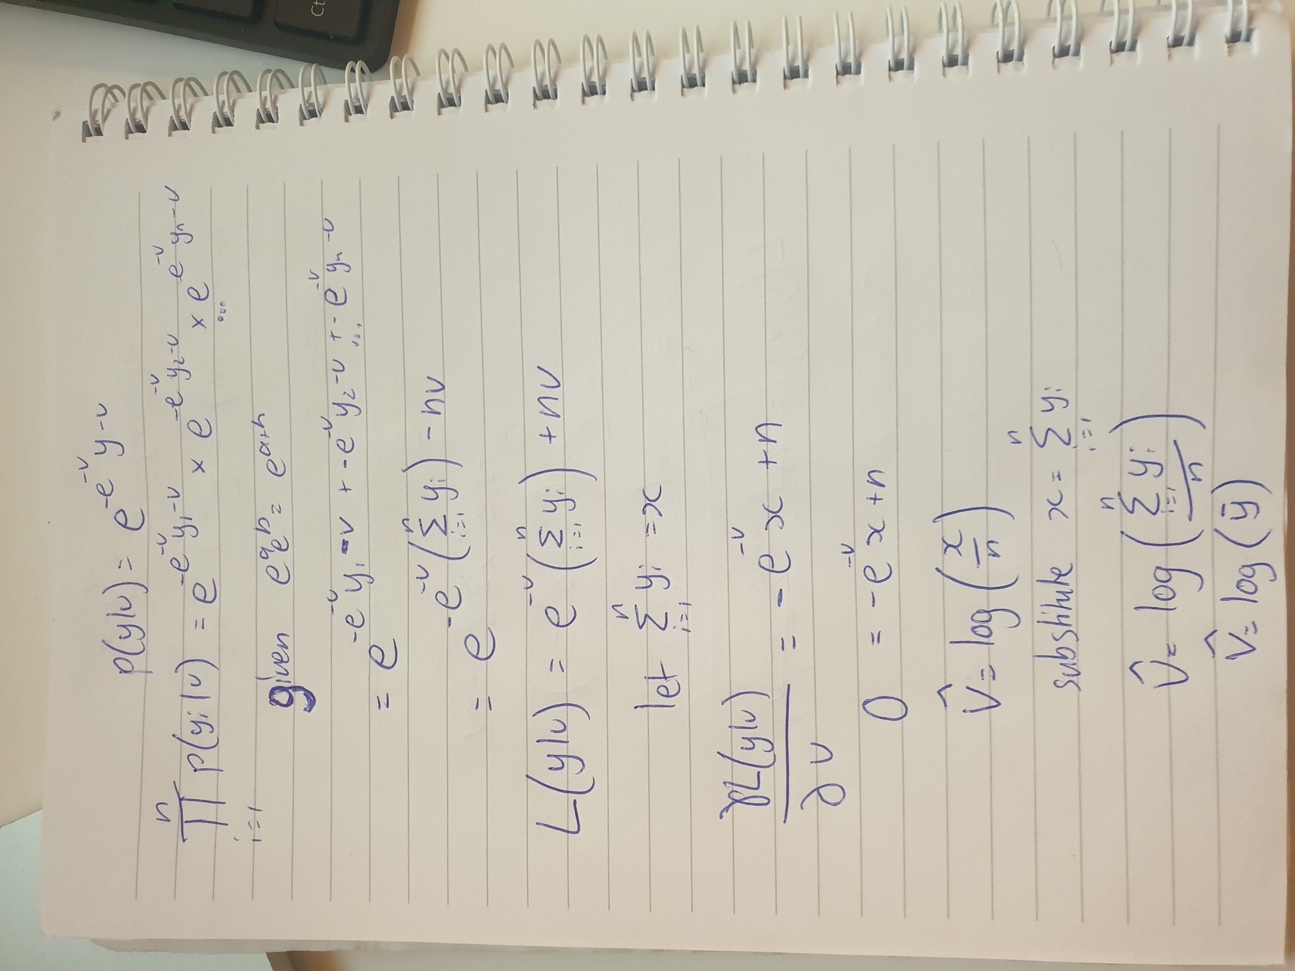 Ct
p(y|v) = e^{-e^{-v}y-v}
∏_{i=1}^{n} p(y_i|v) = e^{-e^{-v}y_1-v} × e^{-e^{-v}y_2-v} ... × e^{-e^{-v}y_n-v}
given e^a e^b = e^{a+b}
= e^{-e^{-v}y_1-v + -e^{-v}y_2-v ... + -e^{-v}y_n-v}
= e^{-e^{-v}(∑_{i=1}^{n} y_i) - nv}
L(y|v) = e^{-v}(∑_{i=1}^{n} y_i) + nv
let ∑_{i=1}^{n} y_i = x
∂L(y|v)/∂v = -e^{-v}x + n
0 = -e^{-v}x + n
v̂ = log(x/n)
substitute x = ∑_{i=1}^{n} y_i
v̂ = log(∑_{i=1}^{n} y_i / n)
v̂ = log(ȳ)